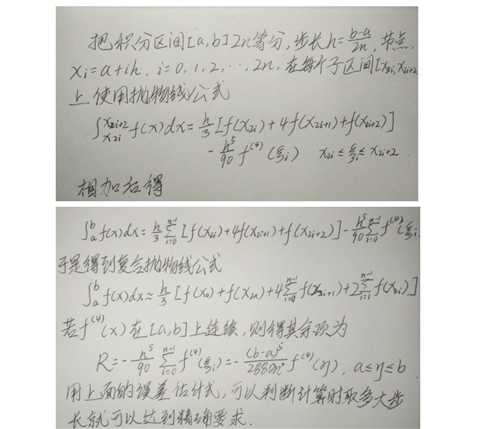 把积分区间[a,b]2n等分,步长h=(b-a)/2n,节点
xi=a+ih, i=0,1,2,…,2n,在每个子区间[x2i,x2i+2
上使用抛物线公式
∫_{x2i}^{x2i+2} f(x)dx=h/3[f(x2i)+4f(x2i+1)+f(x2i+2)]
-h^5/90 f^(4)(ξi) x2i≤ξi≤x2i+2
相加后得
∫_a^b f(x)dx=h/3 Σ_{i=0}^{n-1}[f(x2i)+4f(x2i+1)+f(x2i+2)]-h^5/90 Σ_{i=0}^{n-1} f^(4)(ξi
于是得到复合抛物线公式
∫_a^b f(x)dx≈h/3[f(x0)+f(x2n)+4Σ_{i=0}^{n-1}f(x2i+1)+2Σ_{i=1}^{n-1}f(x2i)]
若f^(4)(x)在[a,b]上连续,则得其余项为
R=-h^5/90 Σ_{i=0}^{n-1} f^(4)(ξi)=-(b-a)^5/2880n^4 f^(4)(η), a≤η≤b
用上面的误差估计式,可以判断计算时取多大步
长就可以达到精确要求.